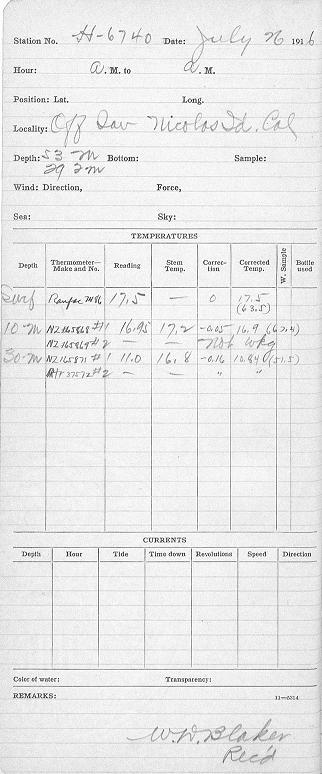 Station No. H-6740 Date: July 26 1916
Hour: A. M. to A. M.
Position: Lat. Long.
Locality: Off San Nicolas Id. Cal
Depth: 53 M Bottom: Sample:
29 2 M
Wind: Direction, Force,
Sea: Sky:
TEMPERATURES
Depth Thermometer—Make and No. Reading Stem Temp. Correction Corrected Temp. W. Sample Bottle used
Surf 17.5 — 0 17.5
(63.5)
10-M NZ165868 #1 16.95 17.2 -0.05 16.9 (62.4)
NZ165869 #2 — — Not wkg
30-M NZ165871 #1 11.0 16.8 -0.16 10.84 (51.5)
37572 #2 — — " "
CURRENTS
Depth Hour Tide Time down Revolutions Speed Direction
Color of water: Transparency:
REMARKS: 11—6314
W.W. Blaker
Rec'd